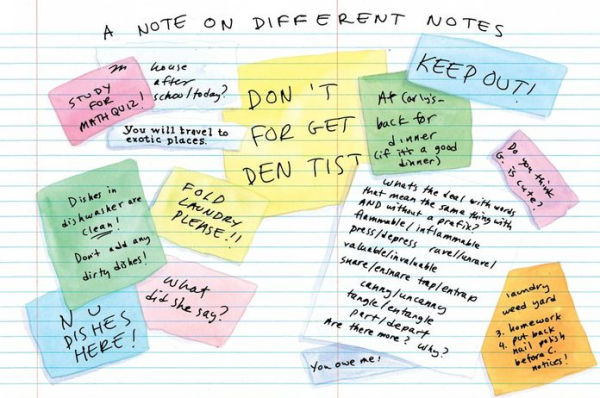 A NOTE ON DIFFERENT NOTES
STUDY
FOR
MATH QUIZ!
m house
after
school today?
You will travel to
exotic places.
DON'T
FORGET
DENTIST
At Carly's-
back for
dinner
(if it's a good
dinner)
KEEP OUT!
Do you think
G. is cute?
Dishes in
dishwasher are
clean!
Don't add any
dirty dishes!
FOLD
LAUNDRY
PLEASE!!
What
did she say?
NO
DISHES
HERE!
What's the deal with words
that mean the same thing with
AND without a prefix?
flammable/inflammable
press/depress ravel/unravel
valuable/invaluable
snare/ensnare trap/entrap
canny/uncanny
tangle/entangle
part/depart
Are there more? Why?
You owe me!
laundry
weed yard
3. homework
4. put back
nail polish
before C.
notices!